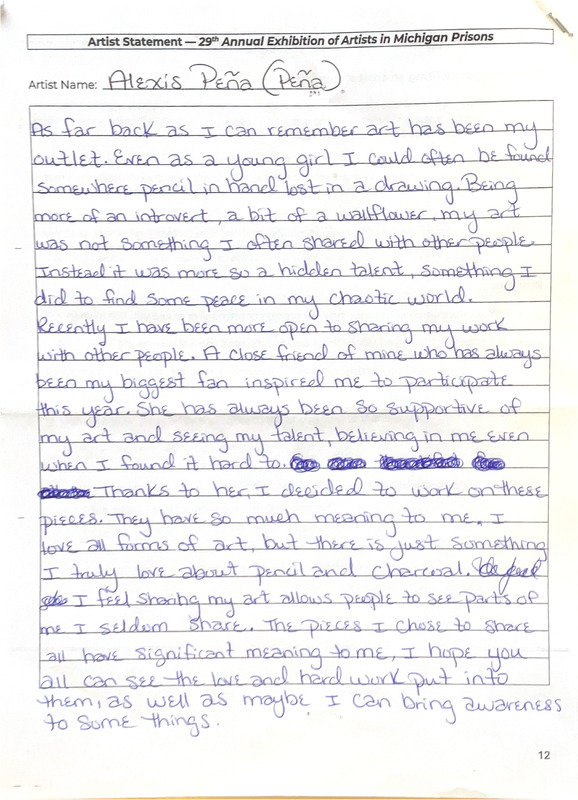 Artist Statement — 29th Annual Exhibition of Artists in Michigan Prisons
Artist Name: Alexis Peña (Peña)
As far back as I can remember art has been my
outlet. Even as a young girl I could often be found
somewhere pencil in hand lost in a drawing. Being
more of an introvert, a bit of a wallflower, my art
was not something I often shared with other people.
Instead it was more so a hidden talent, something I
did to find some peace in my chaotic world.
Recently I have been more open to sharing my work
with other people. A close friend of mine who has always
been my biggest fan inspired me to participate
this year. She has always been so supportive of
my art and seeing my talent, believing in me even
when I found it hard to.
Thanks to her, I decided to work on these
pieces. They have so much meaning to me. I
love all forms of art, but there is just something
I truly love about pencil and charcoal.
I feel sharing my art allows people to see parts of
me I seldom share. The pieces I chose to share
all have significant meaning to me, I hope you
all can see the love and hard work put into
them, as well as maybe I can bring awareness
to some things.
12